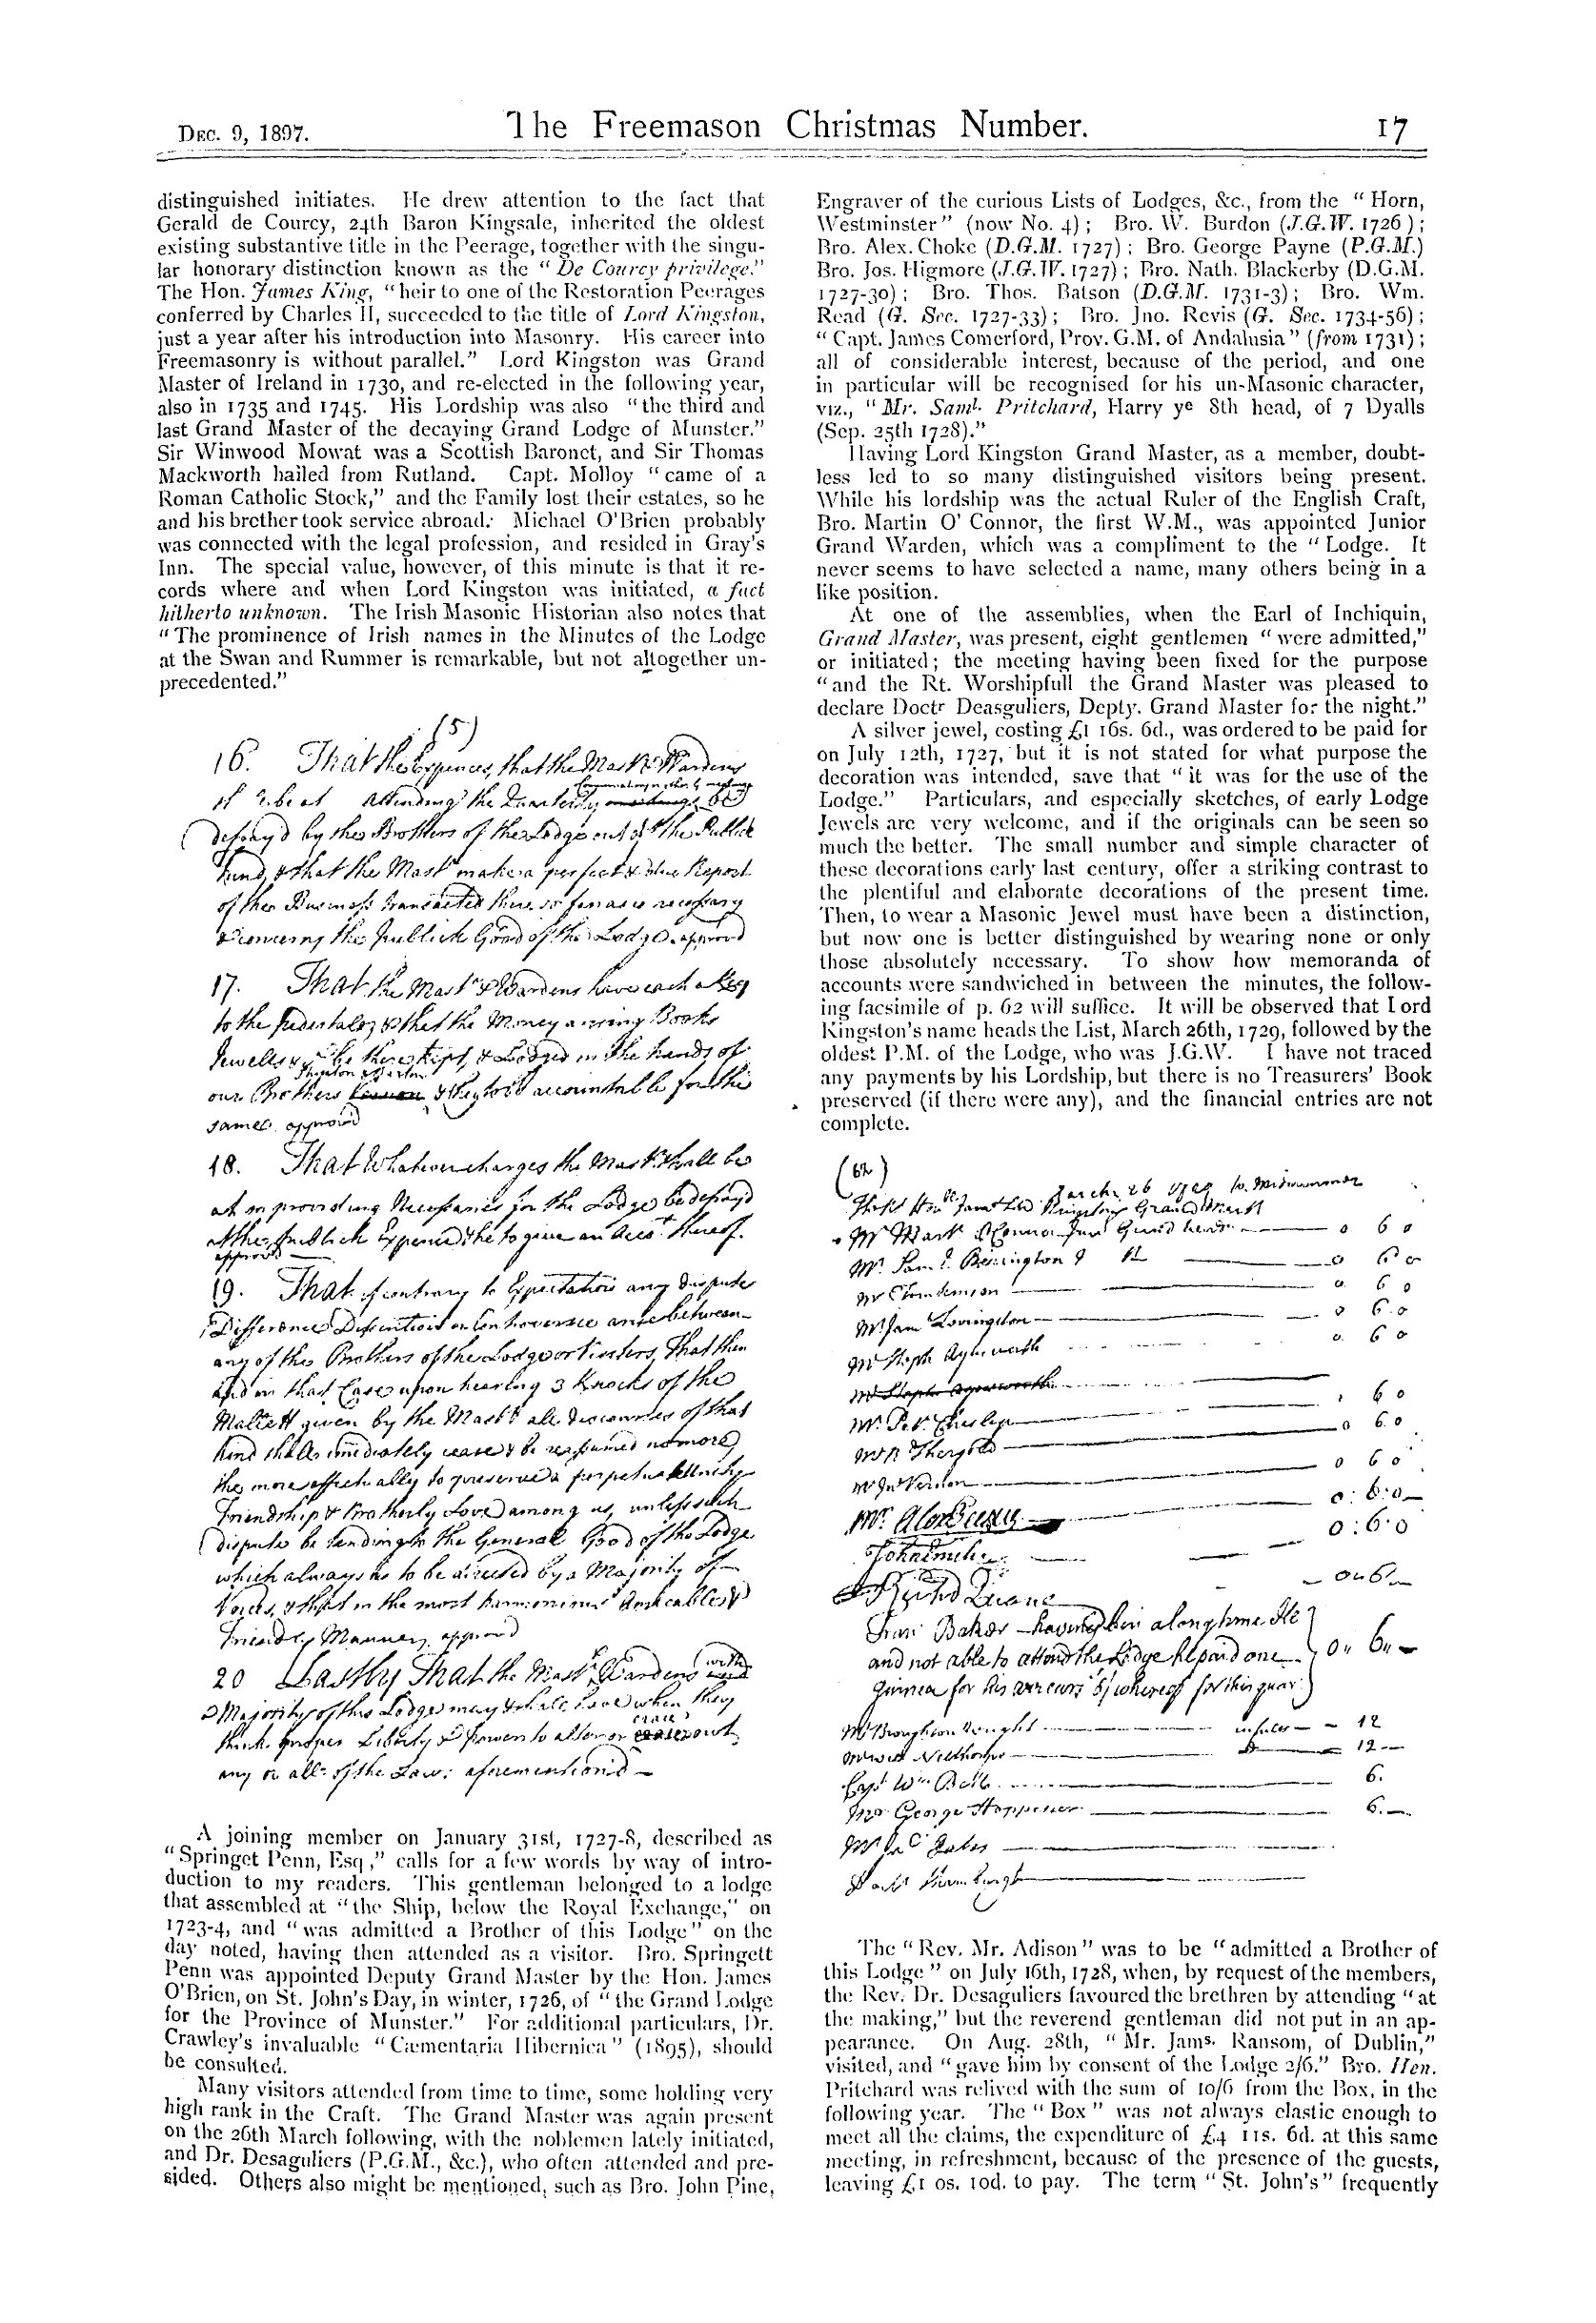 DEC. 9, 1897.
The Freemason Christmas Number.
17
distinguished initiates. He drew attention to the fact that
Gerald de Courcy, 24th Baron Kingsale, inherited the oldest
existing substantive title in the Peerage, together with the singu-
lar honorary distinction known as the "De Courcy privilege."
The Hon. James King, "heir to one of the Restoration Peerages
conferred by Charles II, succeeded to the title of Lord Kingston,
just a year after his introduction into Masonry. His career into
Freemasonry is without parallel." Lord Kingston was Grand
Master of Ireland in 1730, and re-elected in the following year,
also in 1735 and 1745. His Lordship was also "the third and
last Grand Master of the decaying Grand Lodge of Munster."
Sir Winwood Mowat was a Scottish Baronet, and Sir Thomas
Mackworth hailed from Rutland. Capt. Molloy "came of a
Roman Catholic Stock," and the Family lost their estates, so he
and his brether took service abroad. Michael O'Brien probably
was connected with the legal profession, and resided in Gray's
Inn. The special value, however, of this minute is that it re-
cords where and when Lord Kingston was initiated, a fact
hitherto unknown. The Irish Masonic Historian also notes that
"The prominence of Irish names in the Minutes of the Lodge
at the Swan and Rummer is remarkable, but not altogether un-
precedented."
(5)
16. That the Expences, that the Mastr & Wardens
attending the Quarterly be
defray'd by the Brothers of the Lodge out of the Publick
Fund, & that the Mastr make a perfect & true Report
of the Business transacted there so far as is necessary
concerning the publick Good of the Lodge. approvd
17. That the Mastr & Wardens have each a Key
to the Pedestal, & that the Money arising Books
Jewells & be there Kept, & Lodged in the hands of
our Brothers & they to be accountable for the
same. approvd
18. That Whatever charges the Mastr shall be
at in providing Necessaries for the Lodge be defray'd
at the publick Expence & he to give an Acct thereof.
approvd
19. That if contrary to Expectation any dispute
Difference Dissention or Controversie arise between
any of the Brothers of the Lodge or Visiters, That then
and in that Case upon hearing 3 Knocks of the
Mallett given by the Mastr all discourses of that
kind shall imediately cease & be ressumed no more
the more effectually to preserve a perpetual Unity
Friendship & Brotherly Love among us, unless such
dispute be tending to the General Good of the Lodge
which always is to be directed by a Majority of
Voices, & that in the most harmonious Amicable &
Friendly Manner. approvd
20 Lastly That the Mastr & Wardens with
a Majority of this Lodge may & shall have when they
think proper Liberty & power to alter or erace out
any or all of the Laws aforemention'd
A joining member on January 31st, 1727-8, described as
"Springet Penn, Esq," calls for a few words by way of intro-
duction to my readers. This gentleman belonged to a lodge
that assembled at "the Ship, below the Royal Exchange," on
1723-4, and "was admitted a Brother of this Lodge" on the
day noted, having then attended as a visitor. Bro. Springett
Penn was appointed Deputy Grand Master by the Hon. James
O'Brien, on St. John's Day, in winter, 1726, of "the Grand Lodge
for the Province of Munster." For additional particulars, Dr.
Crawley's invaluable "Cæmentaria Hibernica" (1895), should
be consulted.
Many visitors attended from time to time, some holding very
high rank in the Craft. The Grand Master was again present
on the 26th March following, with the noblemen lately initiated,
and Dr. Desaguliers (P.G.M., &c.), who often attended and pre-
sided. Others also might be mentioned, such as Bro. John Pine,
Engraver of the curious Lists of Lodges, &c., from the "Horn,
Westminster" (now No. 4); Bro. W. Burdon (J.G.W. 1726);
Bro. Alex. Choke (D.G.M. 1727); Bro. George Payne (P.G.M.)
Bro. Jos. Higmore (J.G.W. 1727); Bro. Nath. Blackerby (D.G.M.
1727-30); Bro. Thos. Batson (D.G.M. 1731-3); Bro. Wm.
Read (G. Sec. 1727-33); Bro. Jno. Revis (G. Sec. 1734-56);
"Capt. James Comerford, Prov. G.M. of Andalusia" (from 1731);
all of considerable interest, because of the period, and one
in particular will be recognised for his un-Masonic character,
viz., "Mr. Saml. Pritchard, Harry ye 8th head, of 7 Dyalls
(Sep. 25th 1728)."
Having Lord Kingston Grand Master, as a member, doubt-
less led to so many distinguished visitors being present.
While his lordship was the actual Ruler of the English Craft,
Bro. Martin O' Connor, the first W.M., was appointed Junior
Grand Warden, which was a compliment to the "Lodge. It
never seems to have selected a name, many others being in a
like position.
At one of the assemblies, when the Earl of Inchiquin,
Grand Master, was present, eight gentlemen "were admitted,"
or initiated; the meeting having been fixed for the purpose
"and the Rt. Worshipfull the Grand Master was pleased to
declare Doctr Deasguliers, Depty. Grand Master for the night."
A silver jewel, costing £1 16s. 6d., was ordered to be paid for
on July 12th, 1727, but it is not stated for what purpose the
decoration was intended, save that "it was for the use of the
Lodge." Particulars, and especially sketches, of early Lodge
Jewels are very welcome, and if the originals can be seen so
much the better. The small number and simple character of
these decorations early last century, offer a striking contrast to
the plentiful and elaborate decorations of the present time.
Then, to wear a Masonic Jewel must have been a distinction,
but now one is better distinguished by wearing none or only
those absolutely necessary. To show how memoranda of
accounts were sandwiched in between the minutes, the follow-
ing facsimile of p. 62 will suffice. It will be observed that Lord
Kingston's name heads the List, March 26th, 1729, followed by the
oldest P.M. of the Lodge, who was J.G.W. I have not traced
any payments by his Lordship, but there is no Treasurers' Book
preserved (if there were any), and the financial entries are not
complete.
(62)
March 26 1729 to Midsummer
Kingston Grand Mastr
Mr Mart OConnor Junr Grand Warden 0 6 0
Mr Saml Berrington 0 6 0
Mr Tomlinson 0 6 0
Mr Jam Lovington 0 6 0
Mr Steph Ayleworth 0 6 0
Mr Petr Cheslyn 6 0
Mr R Thorgold 0 6 0
Mr Jn Vernon 0 6 0
Mr. Alex 0:6:0
John Smith 0:6:0
Richd Dizane 0 6
Fran Baker having bin a long time Ill
and not able to attend the Lodge he paid one
Guinea for his arrears 6/ whereof for this quar
0 6
Mr Broughton Wright in full 12
Mr Nelthorpe Do 12
Capt Wm Bell 6.
Mr George Hoppener 6.
The "Rev. Mr. Adison" was to be "admitted a Brother of
this Lodge" on July 16th, 1728, when, by request of the members,
the Rev. Dr. Desaguliers favoured the brethren by attending "at
the making," but the reverend gentleman did not put in an ap-
pearance. On Aug. 28th, "Mr. Jams. Ransom, of Dublin,"
visited, and "gave him by consent of the Lodge 2/6." Bro. Hen.
Pritchard was relived with the sum of 10/6 from the Box, in the
following year. The "Box" was not always elastic enough to
meet all the claims, the expenditure of £4 11s. 6d. at this same
meeting, in refreshment, because of the presence of the guests,
leaving £1 0s. 10d. to pay. The term "St. John's" frequently